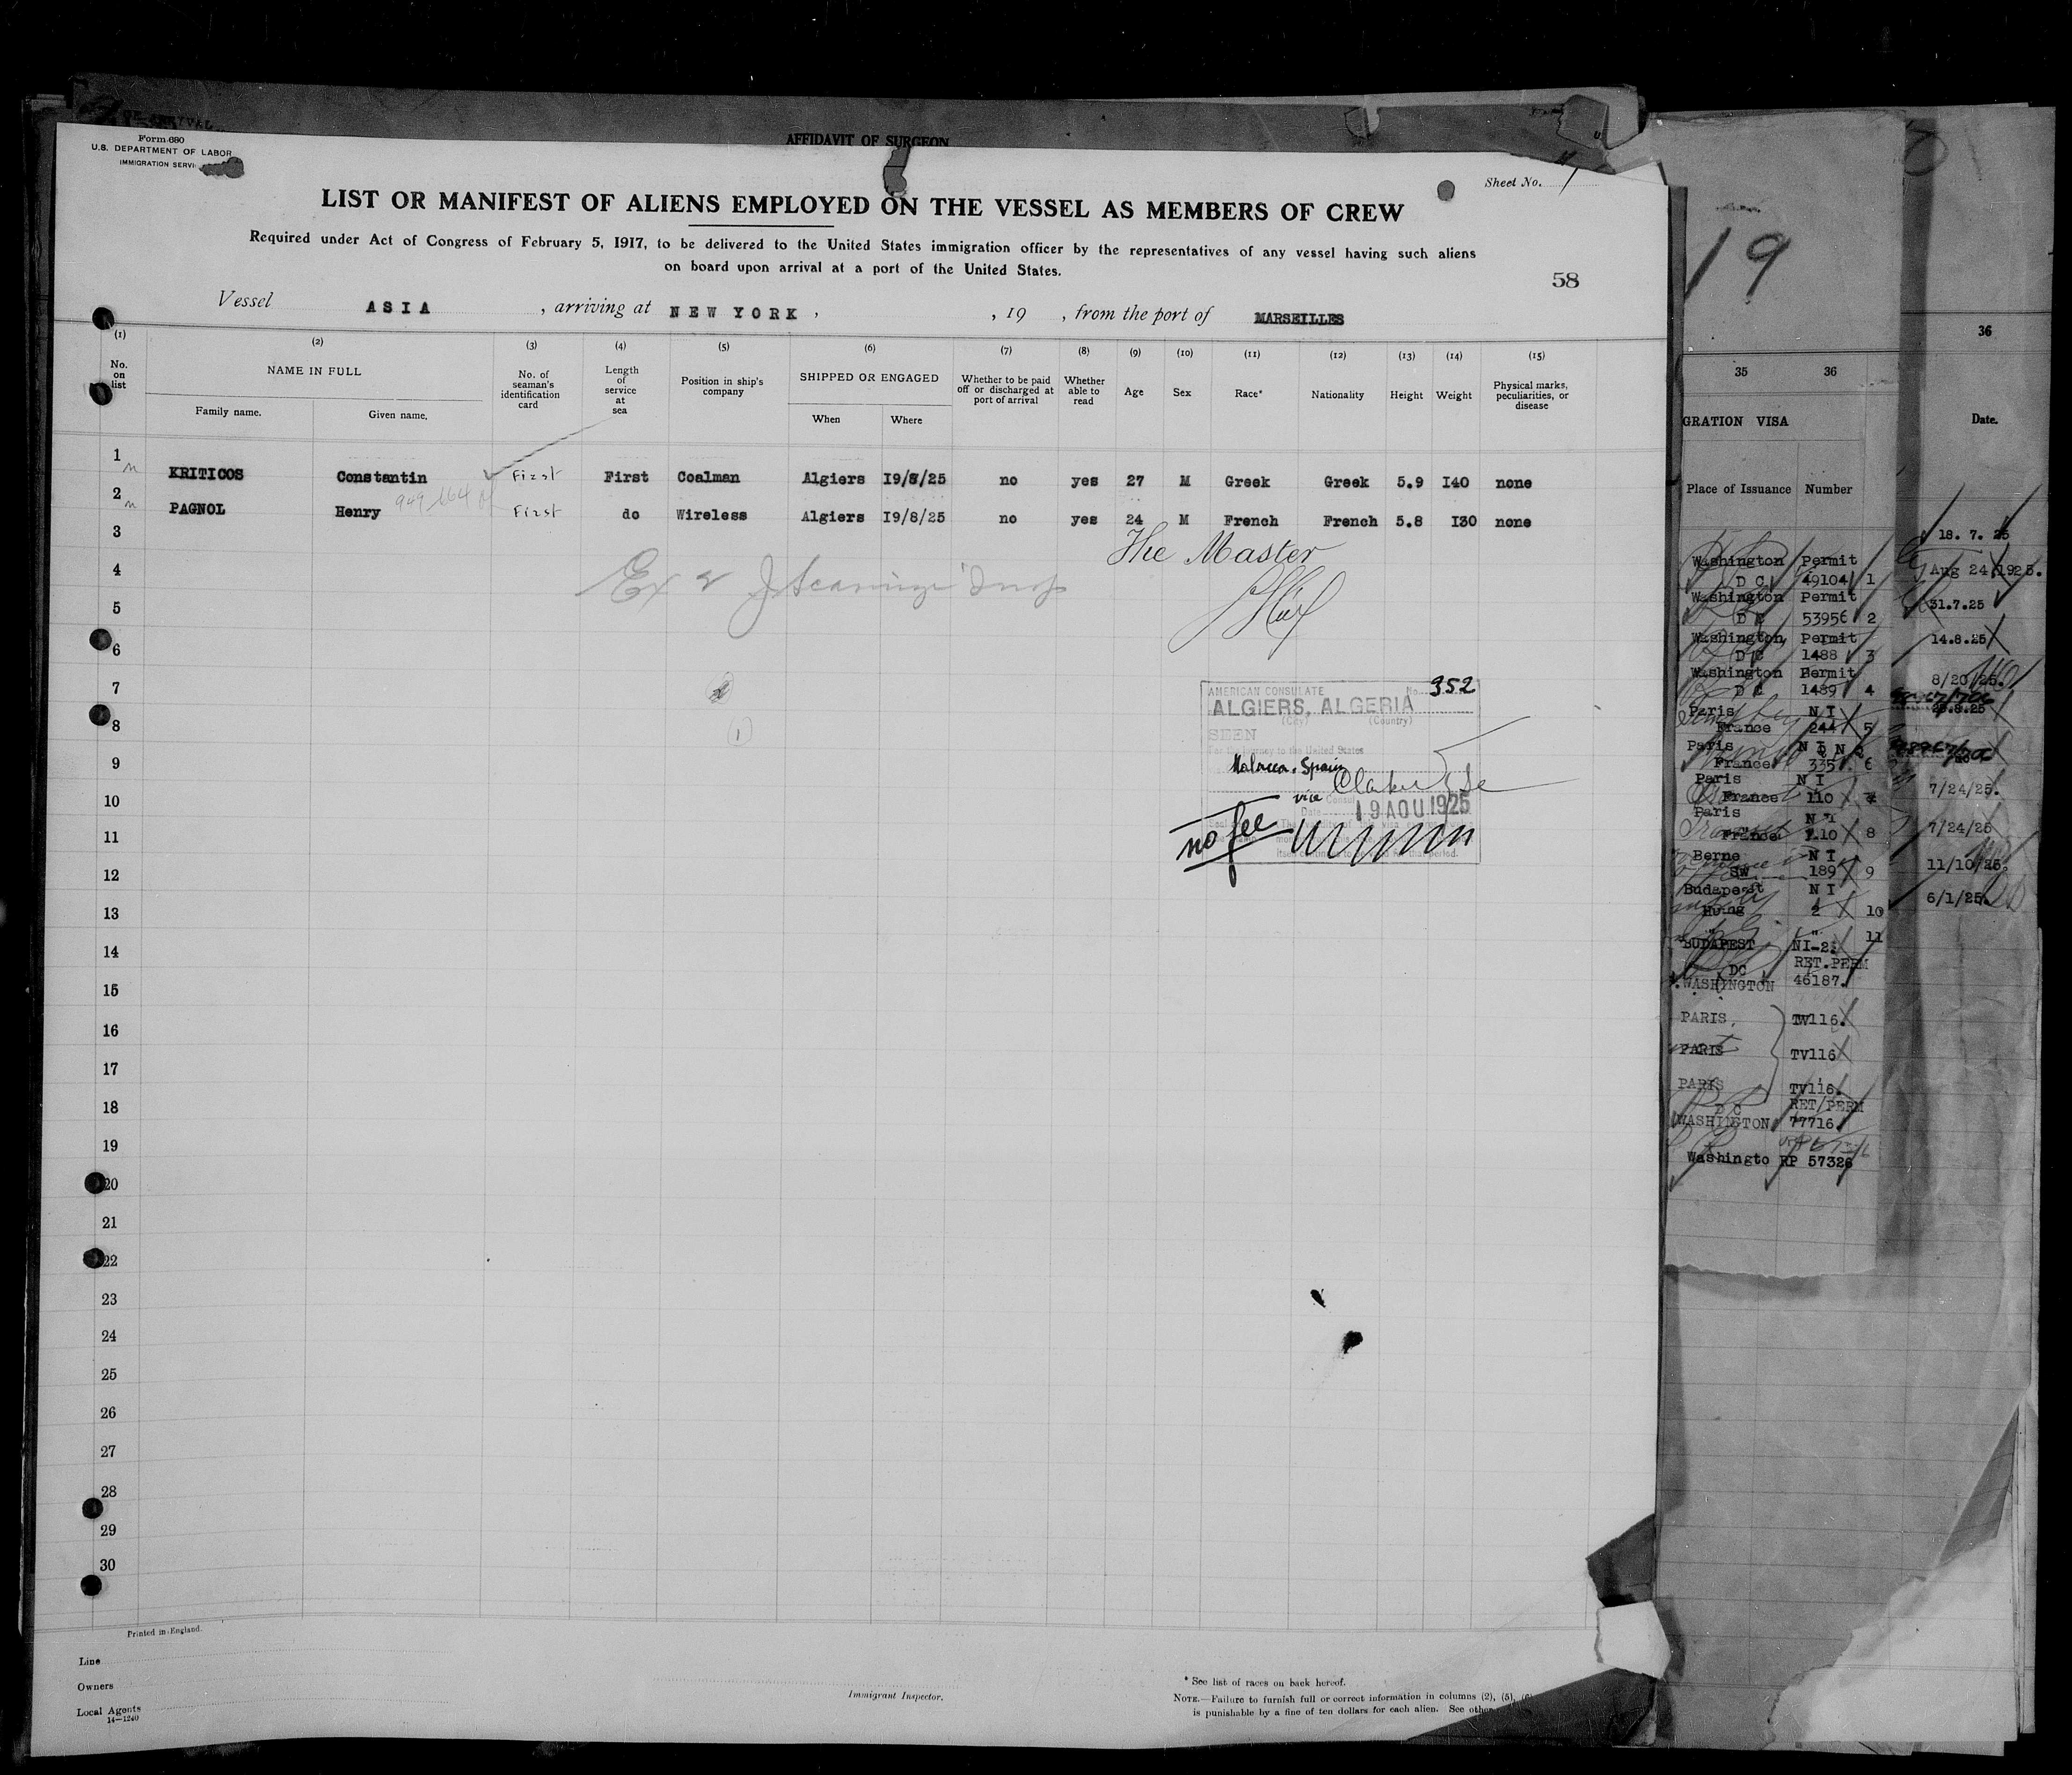 AFFIDAVIT OF SURGEON
Form 680
U.S. DEPARTMENT OF LABOR
IMMIGRATION SERVI
Sheet No.
LIST OR MANIFEST OF ALIENS EMPLOYED ON THE VESSEL AS MEMBERS OF CREW
Required under Act of Congress of February 5, 1917, to be delivered to the United States immigration officer by the representatives of any vessel having such aliens
on board upon arrival at a port of the United States.
58
Vessel ASIA, arriving at NEW YORK, , 19 , from the port of MARSEILLES
(1) (2) (3) (4) (5) (6) (7) (8) (9) (10) (11) (12) (13) (14) (15)
No. on list NAME IN FULL Family name. Given name. No. of seaman's identification card Length of service at sea Position in ship's company SHIPPED OR ENGAGED When Where Whether to be paid off or discharged at port of arrival Whether able to read Age Sex Race* Nationality Height Weight Physical marks, peculiarities, or disease
1 KRITICOS Constantin First First Coalman Algiers 19/8/25 no yes 27 M Greek Greek 5.9 140 none
2 PAGNOL Henry First do Wireless Algiers 19/8/25 no yes 24 M French French 5.8 130 none
3
The Master
4
5
6
7
8
9
10
11
12
13
14
15
16
17
18
19
20
21
22
23
24
25
26
27
28
29
30
AMERICAN CONSULATE No. 352
ALGIERS, ALGERIA
(City) (Country)
SEEN
For the journey to the United States
Malacca, Spain
vice Consul
Date 19 AOU 1925
no fee
Printed in England.
Line
Owners
Local Agents
14—1240
Immigrant Inspector.
* See list of races on back hereof.
NOTE.—Failure to furnish full or correct information in columns (2), (5), (6)
is punishable by a fine of ten dollars for each alien. See other
19
36
35 36
GRATION VISA
Date.
Place of Issuance Number
18. 7. 25
Washington Permit
D C 49104 1
Aug 24, 1925.
Washington Permit
D C 53956 2
31.7.25
Washington Permit
D C 1488 3
14.8.25
Washington Permit
D C 1489 4
8/20/25.
Paris N I
France 244 5
Paris N I
France 335 6
Paris N I
France 110
7/24/25.
Paris N I
France 110 8
7/24/25
Berne N I
SW 189 9
11/10/25.
Budapest N I
Hung 2 10
6/1/25.
11
BUDAPEST NI-2
DC RET.PERM
WASHINGTON 46187.
PARIS TV116.
PARIS TV116
PARIS TV116.
D C RET/PERM
WASHINGTON 77716
Washingto RP 57326